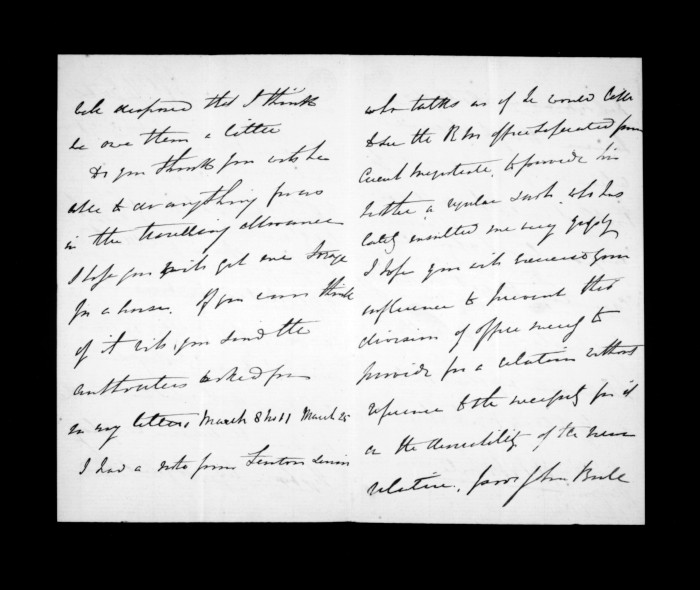 disposed that I think
he owe them a little
Do you think you will be
able to do anything for us
in the travelling allowance
I hope you will get me forage
for a horse. If you can think
of it will you send the
authorities asked for
in my letters March 8 March 25
I had a note from Fenton
who talks as if he would
to see the RM office separated from
to provide his
brother a regular who has
lately insulted me very grossly
I hope you will exercise your
influence to prevent this
division of office merely to
provide for a relation without
reference to the necessity for it
or the desirability of the new
relative. poor John Bull